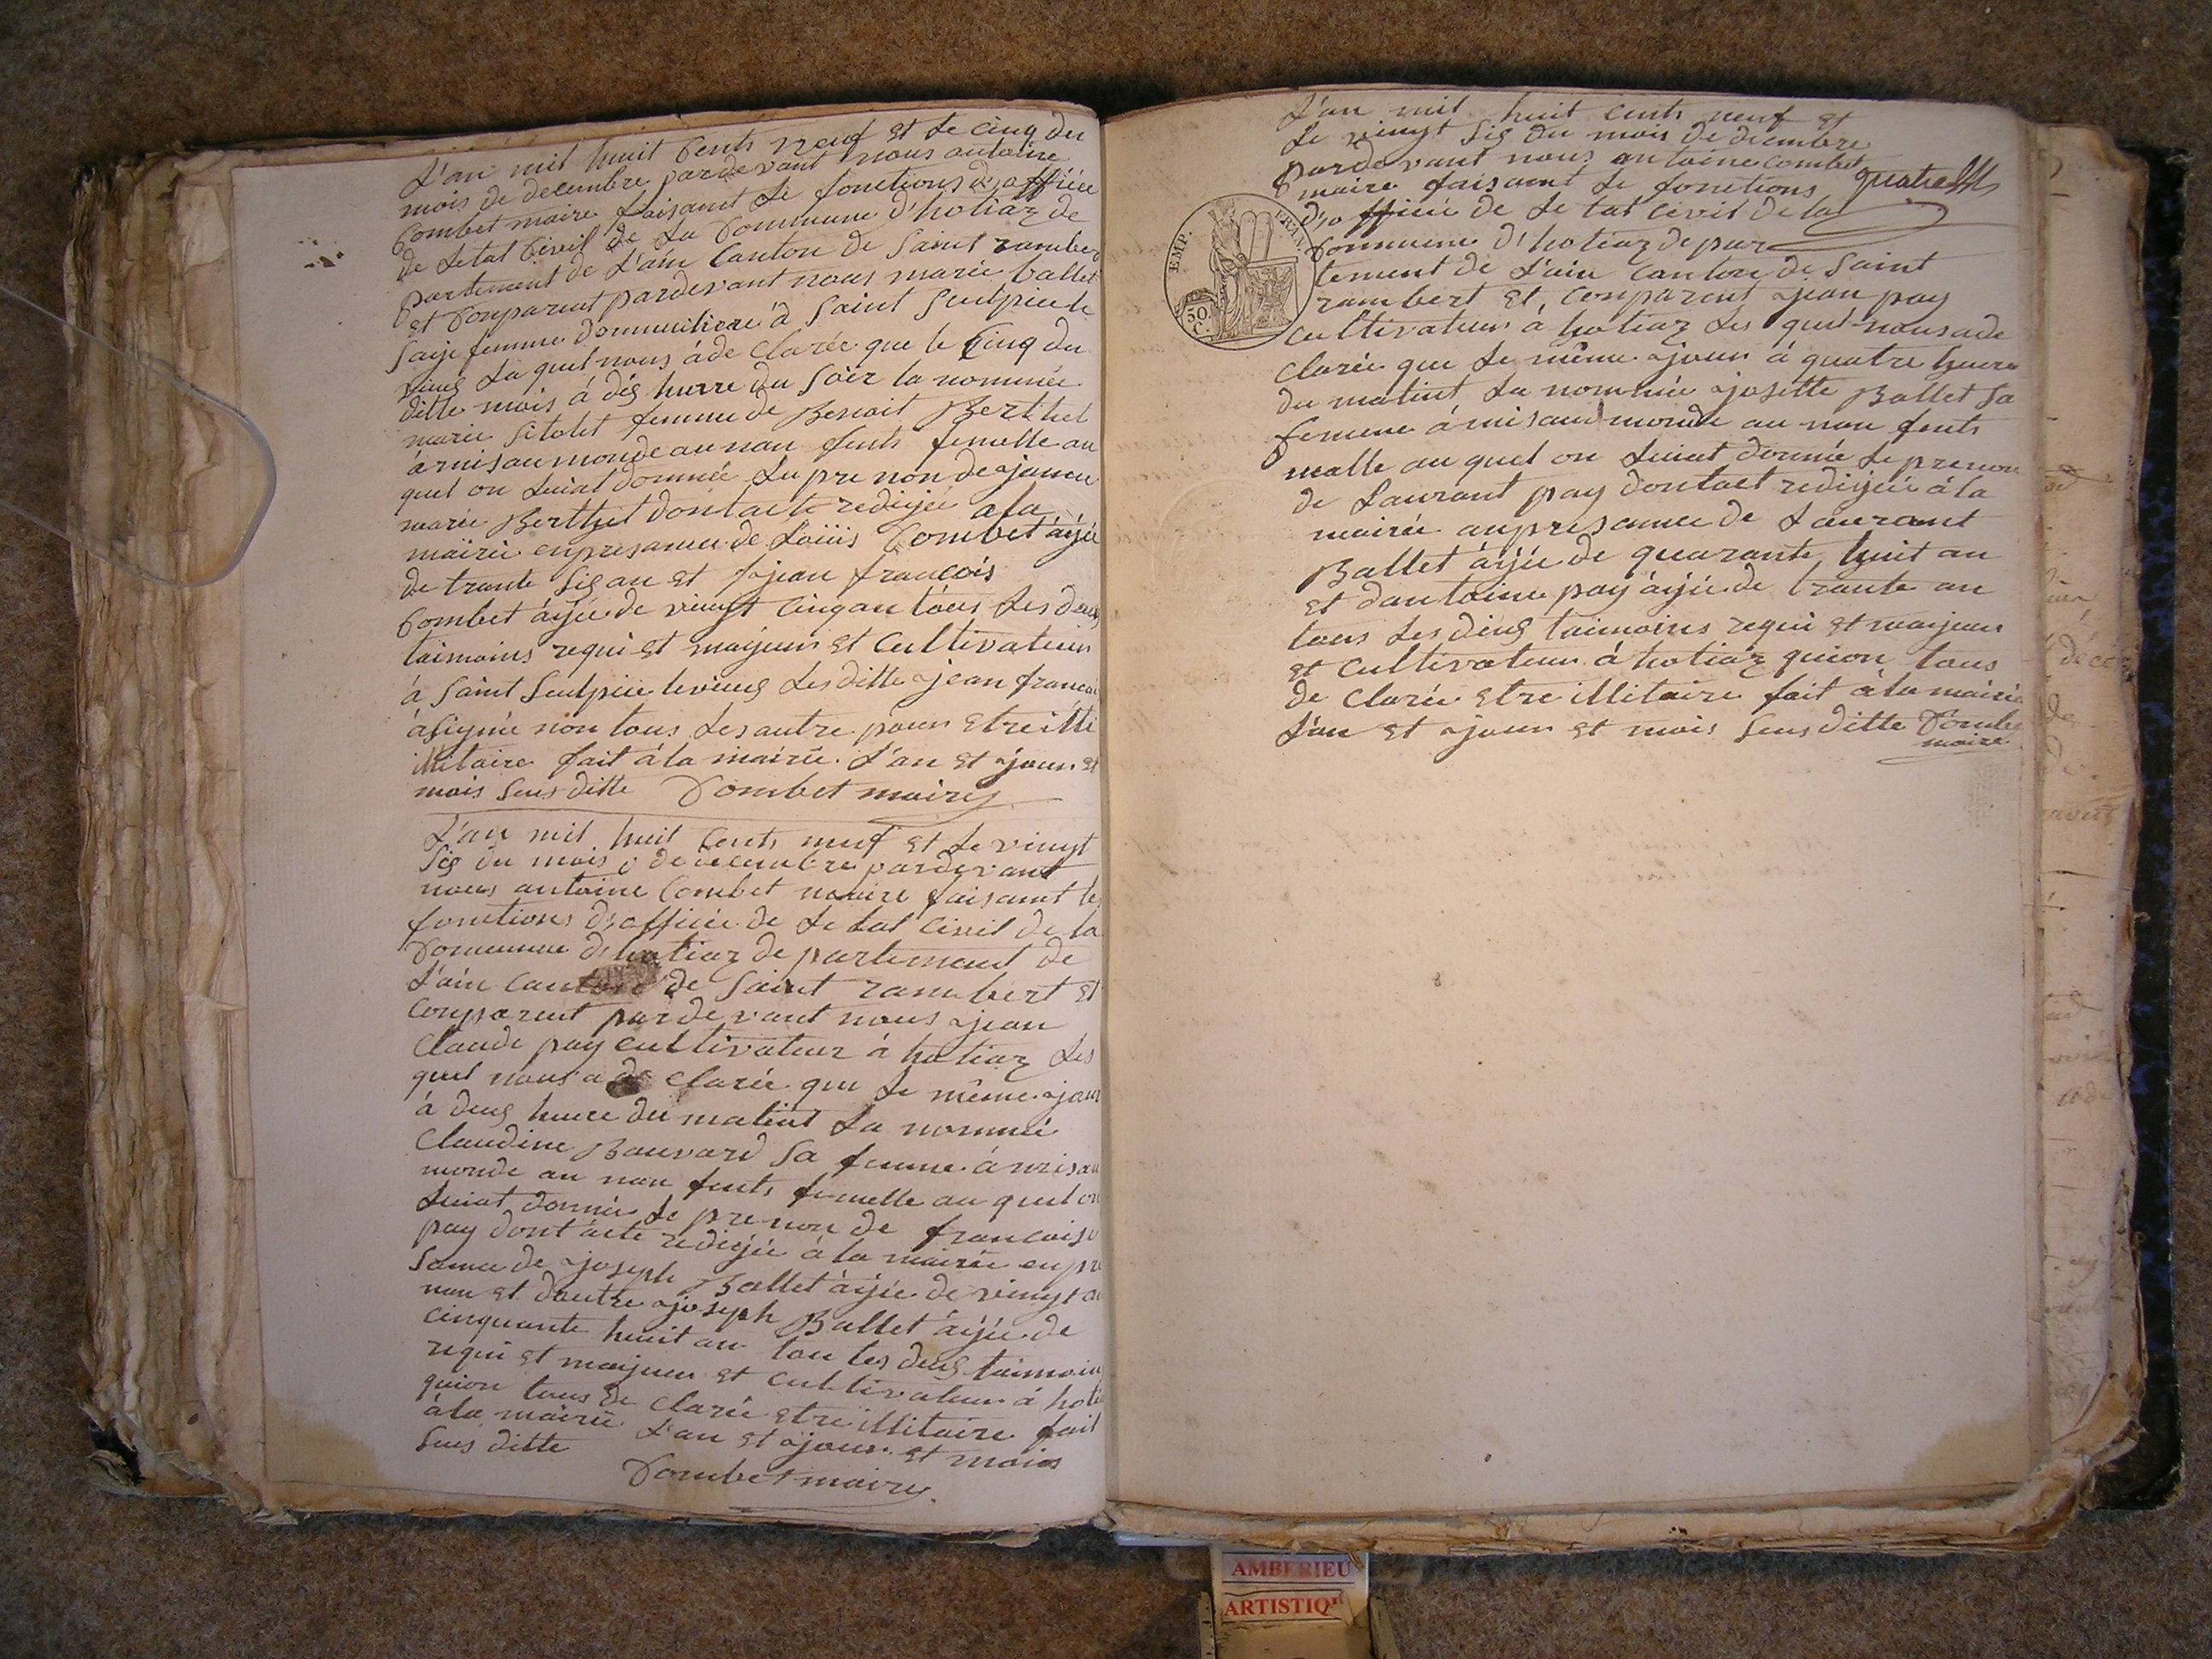 L'an mil huit Cents neuf et le cinq du
mois de decembre pardevant nous antoine
Combet maire faisant le fonctions d'officiée
de Letat Civil de La Commune d'hotiaz de
partement de L'ain Canton de Saint rambert
et Conparent pardevant nous marie ballet
Saije femme dommicilieze à Saint Sulpice le
vieus La quel nous áde Clarée que le Cinq du
ditte mois á dis heure du Soir la nommée
marie femme de Benoit Berthet
á mis au monde au nan fents femelle au
quel on Luiat donnée Le pre non de jeanne
marie Berthet dontacte redijée a la
mairie enpresance de Loüis Combet áijée
de trante Sis an et jean francois
Combet áijée de vingt Cinq an tous Les deus
taimoins requi et maijeur et Cultivateur
á Saint Sulpice levieus Les ditte jean francoi
ásignée non tous Les autre pour etre illi
illitaire fait á la mairie L'an et jour et
mois Sus ditte Combet maire
L'an mil huit Cents neuf et Le vingt
Sis du mois de decembre pardevant
nous antoine Combet maire faisant le
fonctions d'officiée de Le tat Civil de la
Commune d'hotiaz de partement de
L'ain Canton de Saint rambert et
Conparent par de vant nous jean
Claude pay Cultivateur á hotiaz Les
quel nous a de Clarée que Le même jour
á deus heure du matint La nommée
Claudine Bouvard Sa femme á mis au
monde au nan fents femelle au quel on
Luiat donnée Le pre non de francoise
pay dont acte redijée á la mairie en pre
Sance de joseph Ballet áijée de vingt
nan et dautre joseph Ballet áijée de
Cinquante huit an tou les deus taimoin
requi et maijeur et Cultivateur á hoti
quion tous de Clarée etre illitaire fait
á la mairie L'an et jour et mois
Sus ditte
Combet maire
L'an mil huit Cents neuf et
Le vingt Sis du mois de decembre
pardevant nous antoine Combet
maire faisant Le fonctions quatre
d'officiée de Le tat Civil de la
Commune d'hotiaz depar
tement de L'ain Canton de Saint
rambert et Conparent jean pay
Cultivateur á hotiaz Les quel nous ade
Clarée que Le même jour á quatre heure
du matint La nommée josette Ballet Sa
femme á mis au monde au nan fents
malle au quel on Luiat donnée Le prenon
de Laurant pay dontact redijée á la
mairie anpresance de Laurant
Ballet áijée de quarante huit an
et dantoine pay áijée de trante an
tous Les deus taimoins requi et maijeur
et Cultivateur á hotiaz quion tous
de Clarée etre illitaire fait á la mairie
L'an et jour et mois Sus ditte Combe
maire
EMP. FRAN.
50
C.
AMBERIEU
ARTISTIQ